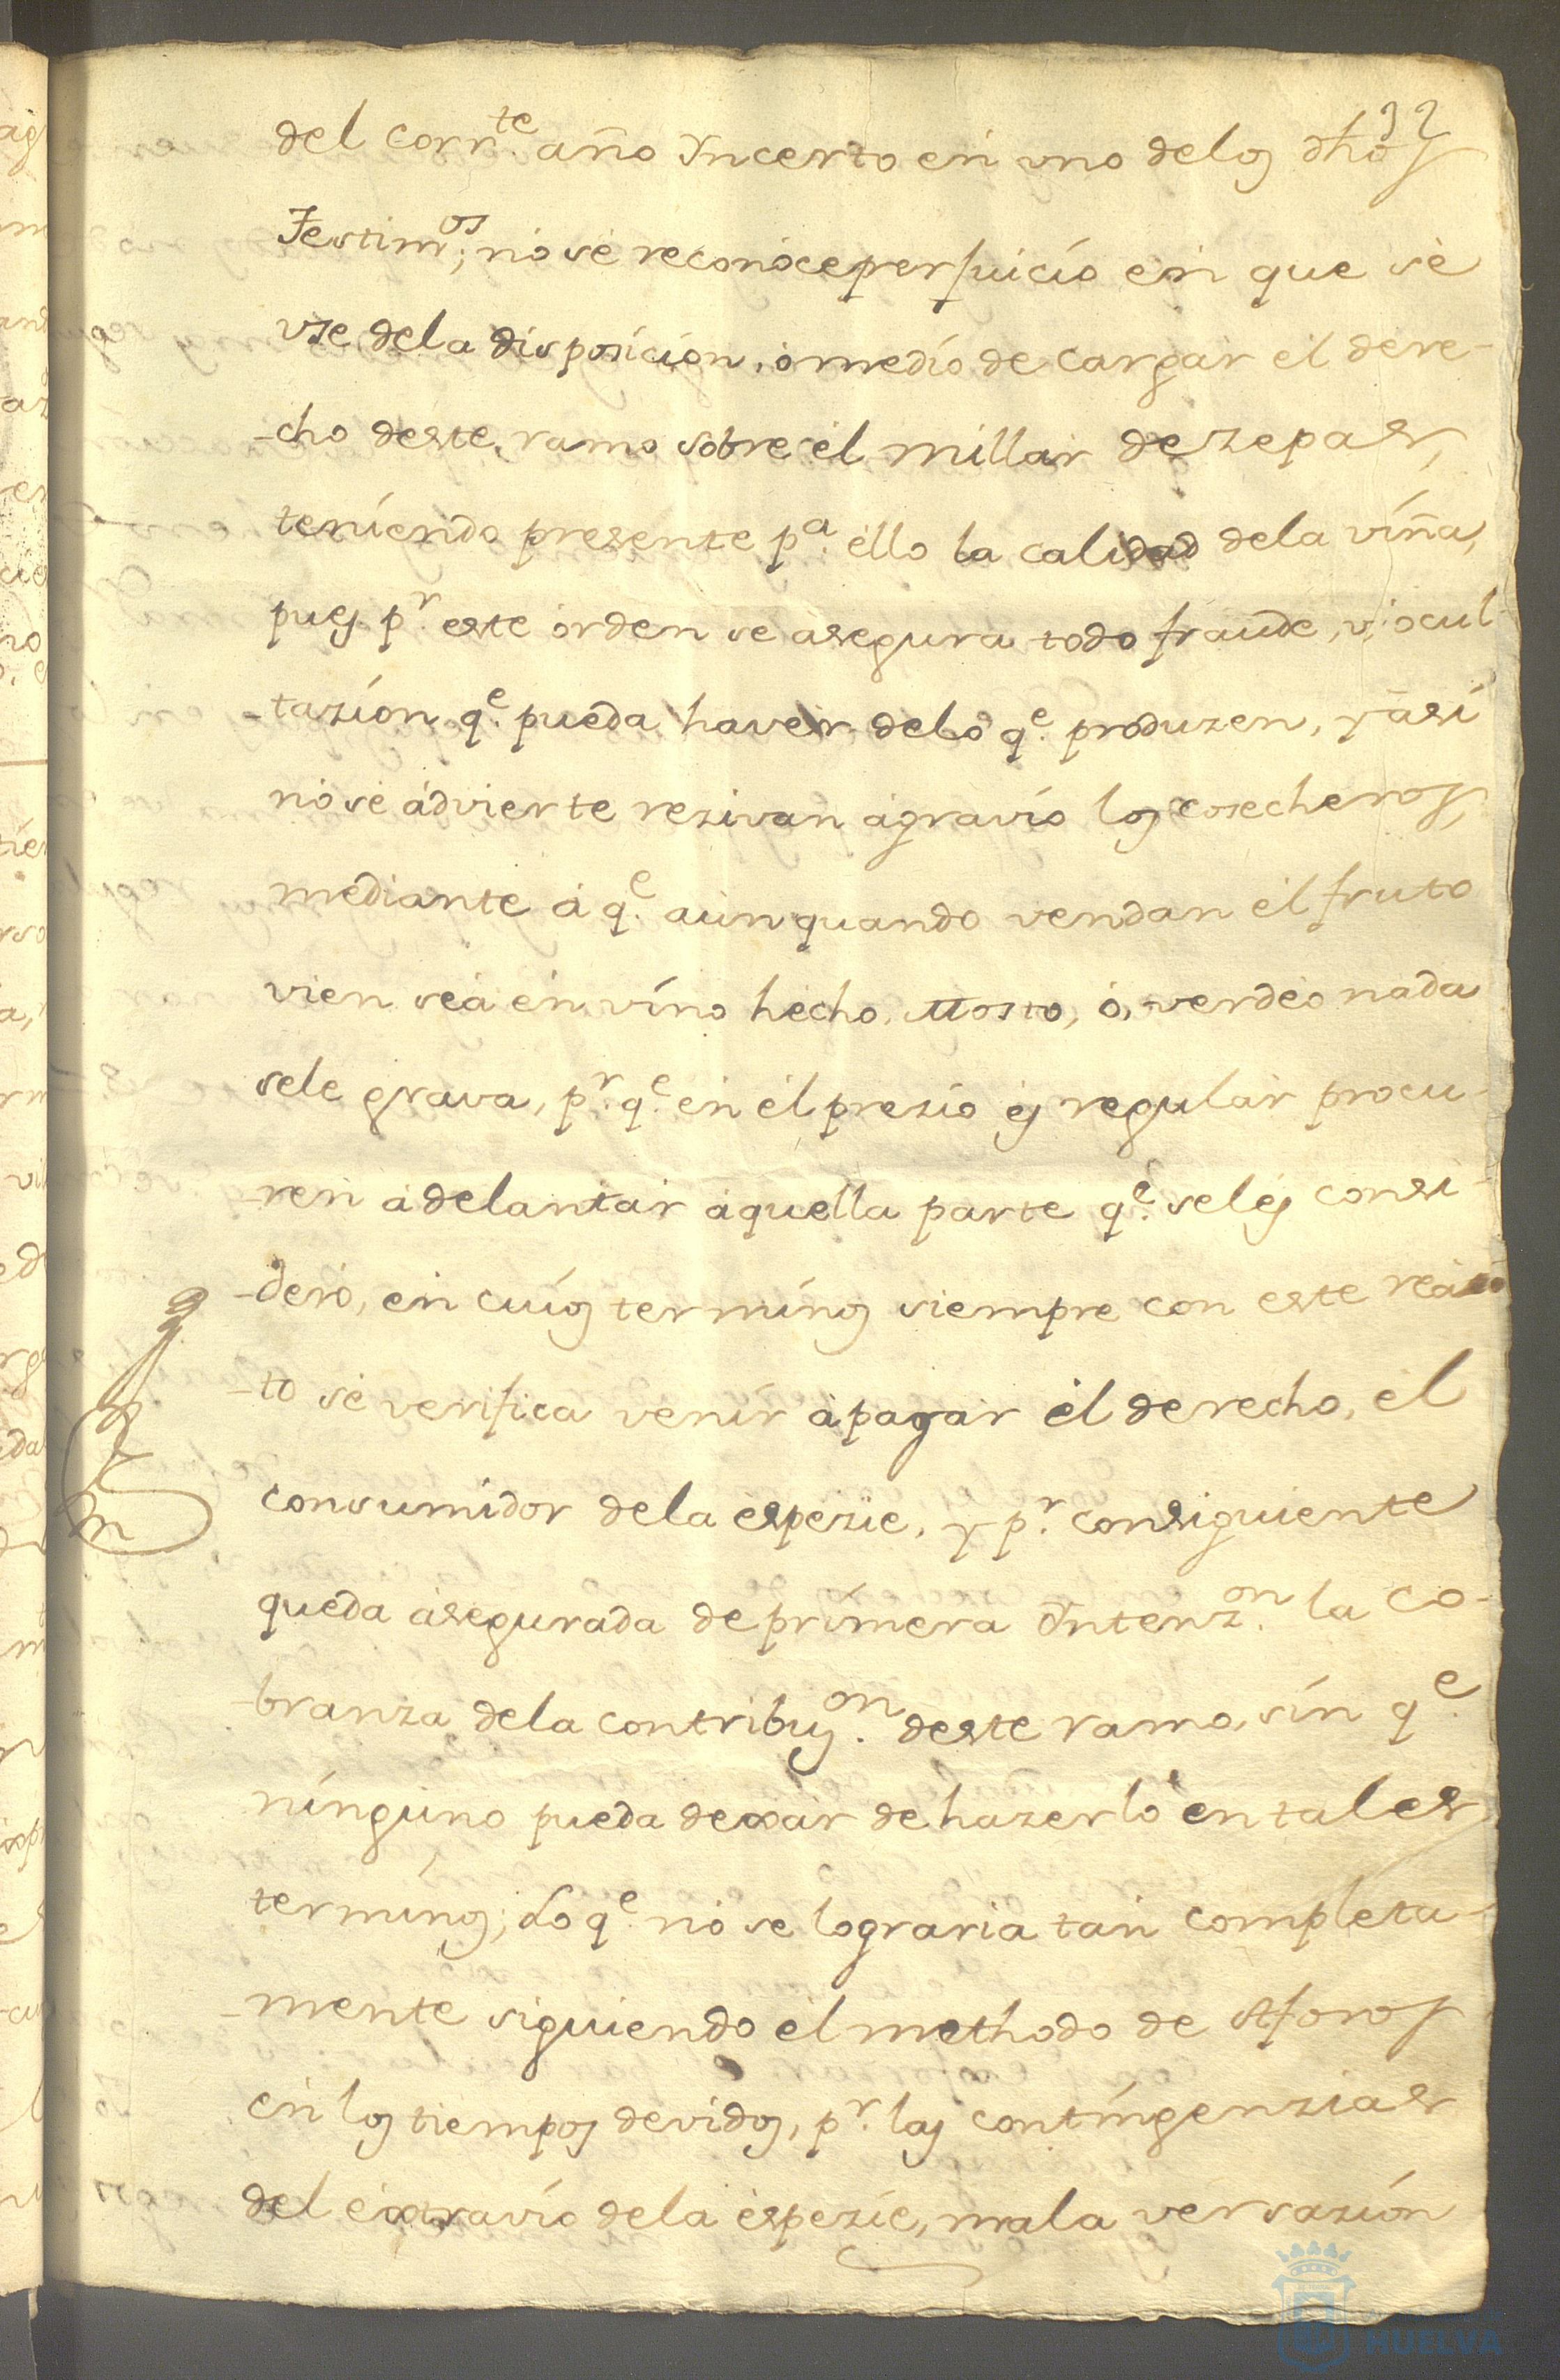 32
del corr.te año Yncerto en vno delos dhos
Testim.os; nose reconoce perjuicio en que se
vse dela disposicion, o medio de cargar el dere-
-cho deste ramo sobre el millar de zepas,
teniendo presente p.a ello la calidad dela viña,
pues p.r este orden se asegura todo fraude, v ocul-
-tazion q.e pueda haver delo q.e produzen, y asi
nose advierte rezivan agravio los cosecheros,
mediante a q.e aun quando vendan el fruto
vien sea en vino hecho, Mosto, o, verdeo nada
sele grava, p.r q.e en el prezio es regular procu-
-ren adelantar aquella parte q.e seles consi-
-dero, en cuios terminos siempre con este
-to se verifica venir apagar el derecho, el
consumidor dela espezie, y p.r consiguiente
queda asegurada de primera Yntenz.on la co-
-branza dela contribuz.on deste ramo, sin q.e
ninguno pueda dexar de hazerlo en tales
terminos; Lo q.e no se lograria tan completa-
-mente siguiendo el methodo de Aforos
en los tiempos devidos, p.r las contingenzias
del extravio dela espezie, mala versazion
HUELVA